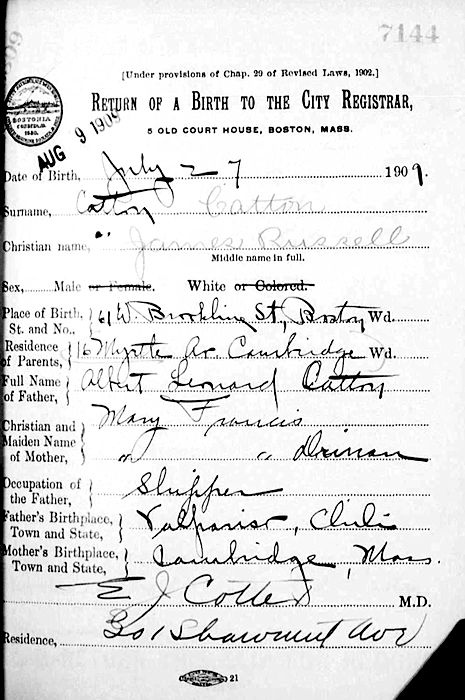 7144
[Under provisions of Chap. 29 of Revised Laws, 1902.]
RETURN OF A BIRTH TO THE CITY REGISTRAR,
5 OLD COURT HOUSE, BOSTON, MASS.
BOSTONIA
AUG 9 1909
Date of Birth, July 27 1909.
Surname, Catton Catton
Christian name, James Russell
Middle name in full.
Sex, Male or Female. White or Colored.
Place of Birth, St. and No., 61 W. Brookline St, Boston Wd.
Residence of Parents, 16 Myrtle Av. Cambridge Wd.
Full Name of Father, Albert Leonard Catton
Christian and Maiden Name of Mother, Mary Francis
" " Drinan
Occupation of the Father, Shipper
Father's Birthplace, Town and State, Valpariso, Chili
Mother's Birthplace, Town and State, Cambridge, Mass.
E J Cotter M.D.
Residence, Shawmut Ave
21